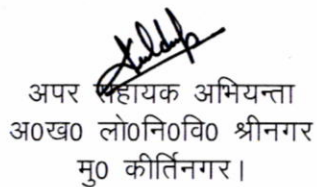 अपर सहायक अभियन्ता
अ0ख0 लो0नि0वि0 श्रीनगर
मु0 कीर्तिनगर।